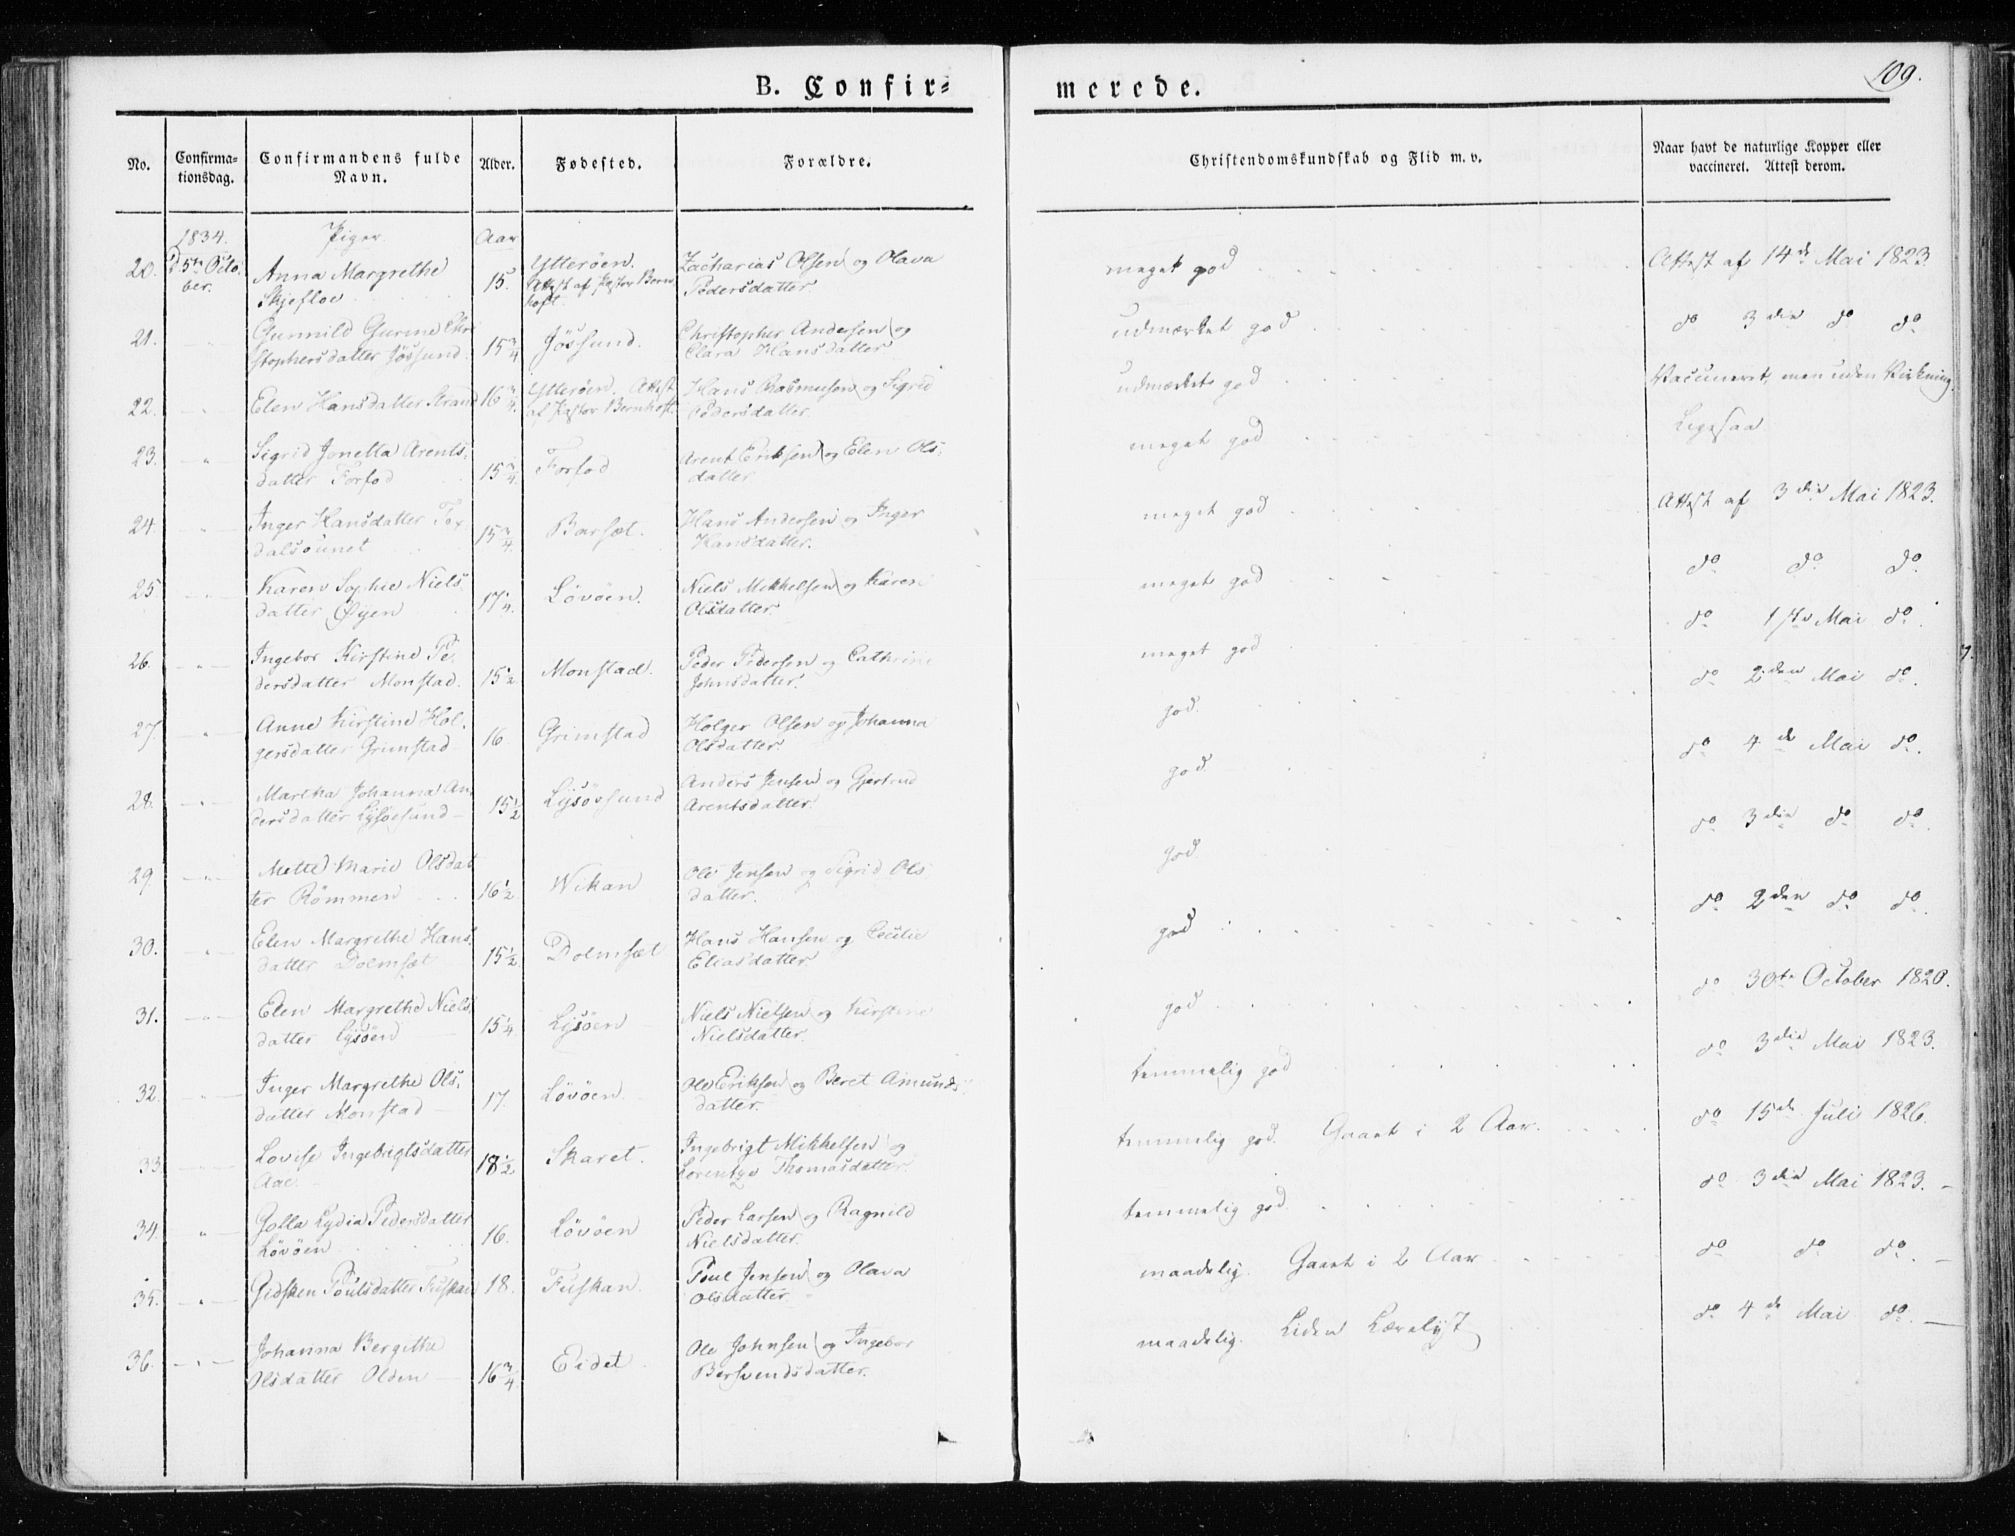 109.
B. Confir=
merede.
No.
Confirma-
tionsdag.
Confirmandens fulde
Navn.
Alder.
Fødested.
Forældre.
Christendomskundskab og Flid m. v.
Naar havt de naturlige Kopper eller
vaccineret. Attest derom.
1834. Piger. Aar
20. D 5te Octo- Anna Margrethe 15. Ytterøen. Zacharias Olsen og Olava meget god Attest af 14de Mai 1823.
ber. Skjefloe Attest af Pastor Bern- Pedersdatter.
hoft.
21. Gunnild Gurine Chri 15 3/4 Jössund. Christopher Andersen og udmærket god do 3die do do
stophersdatter Jössund. Clara Hansdatter
22. Elen Hansdatter Strand 16 3/4 Ytterøen. Attest Hans Rasmusen og Sigrid udmærket god Vaccineret, men uden Virkning.
af Pastor Bernhoft. Pedersdatter.
23. Sigrid Jonetta Arents- 15 3/4 Forfod Arent Eriksen og Elen Ols- meget god Ligesaa
datter Forfod datter
24. Inger Hansdatter 15 3/4 Barsæt. Hans Andersen og Inger meget god Attest af 3die Mai 1823.
Hansdatter.
25 Karen Sophie Niels 17 1/4. Lövöen. Niels Mikkelsen og Karen meget god do do do
datter Øyen Olsdatter.
26. Ingebor Kirstine Pe- 15 1/2 Monstad. Peder Pedersen og Cathrine meget god do 1ste Mai do.
dersdatter Monstad. Johnsdatter.
27 Anne Kirstine Hol- 16 Grimstad Holger Olsen og Johanna god. do 2den Mai do.
gersdatter Grimstad Olsdatter.
28. Martha Johanna An- 15 1/2 Lysöesund Anders Jensen og Gjertrud god do 4de Mai do.
dersdatter Lysöesund Arentsdatter.
29 Mette Marie Olsdat 16 1/2 Wikan Ole Jensen og Sigrid Ols god do 3die do do.
ter Römmen datter.
30. Elen Margrethe Hans- 15 1/2 Dolmsæt Hans Hansen og Cecilie god do 2den do do.
datter Dolmsæt Eliasdatter.
31. Elen Margrethe Niels- 15 1/4 Lysöen Niels Nielsen og Kirstine god do 30te October 1820.
datter Lysöen Nielsdatter.
32. Inger Margrethe Ols- 17. Lövöen. Ole Eriksen og Beret Amunds- temmelig god do 3die Mai 1823.
datter Monstad datter.
33. Lovise Ingebrigtsdatter 18 1/2 Skaret. Ingebrigt Mikkelsen og temmelig god. Gaaet i 2 Aar. do 15de Juli 1826.
Aae. Lorentze Thomasdatter.
34. Golla Lydia Pedersdatter 16. Lövöen Peder Larsen og Ragnild temmelig god. do 3die Mai 1823.
Lövöen Nielsdatter.
35. Gidsken Poulsdatter Fuskan 18. Fuskan. Poul Jensen og Olava maadelig. Gaaet i 2 Aar do do do.
Olsdatter.
36. Johanna Bergithe 16 3/4 Eidet Ole Johnsen og Ingebor maadelig. Liden Lærelyst do 4de Mai do.
Olsdatter Olden Bersvendsdatter.